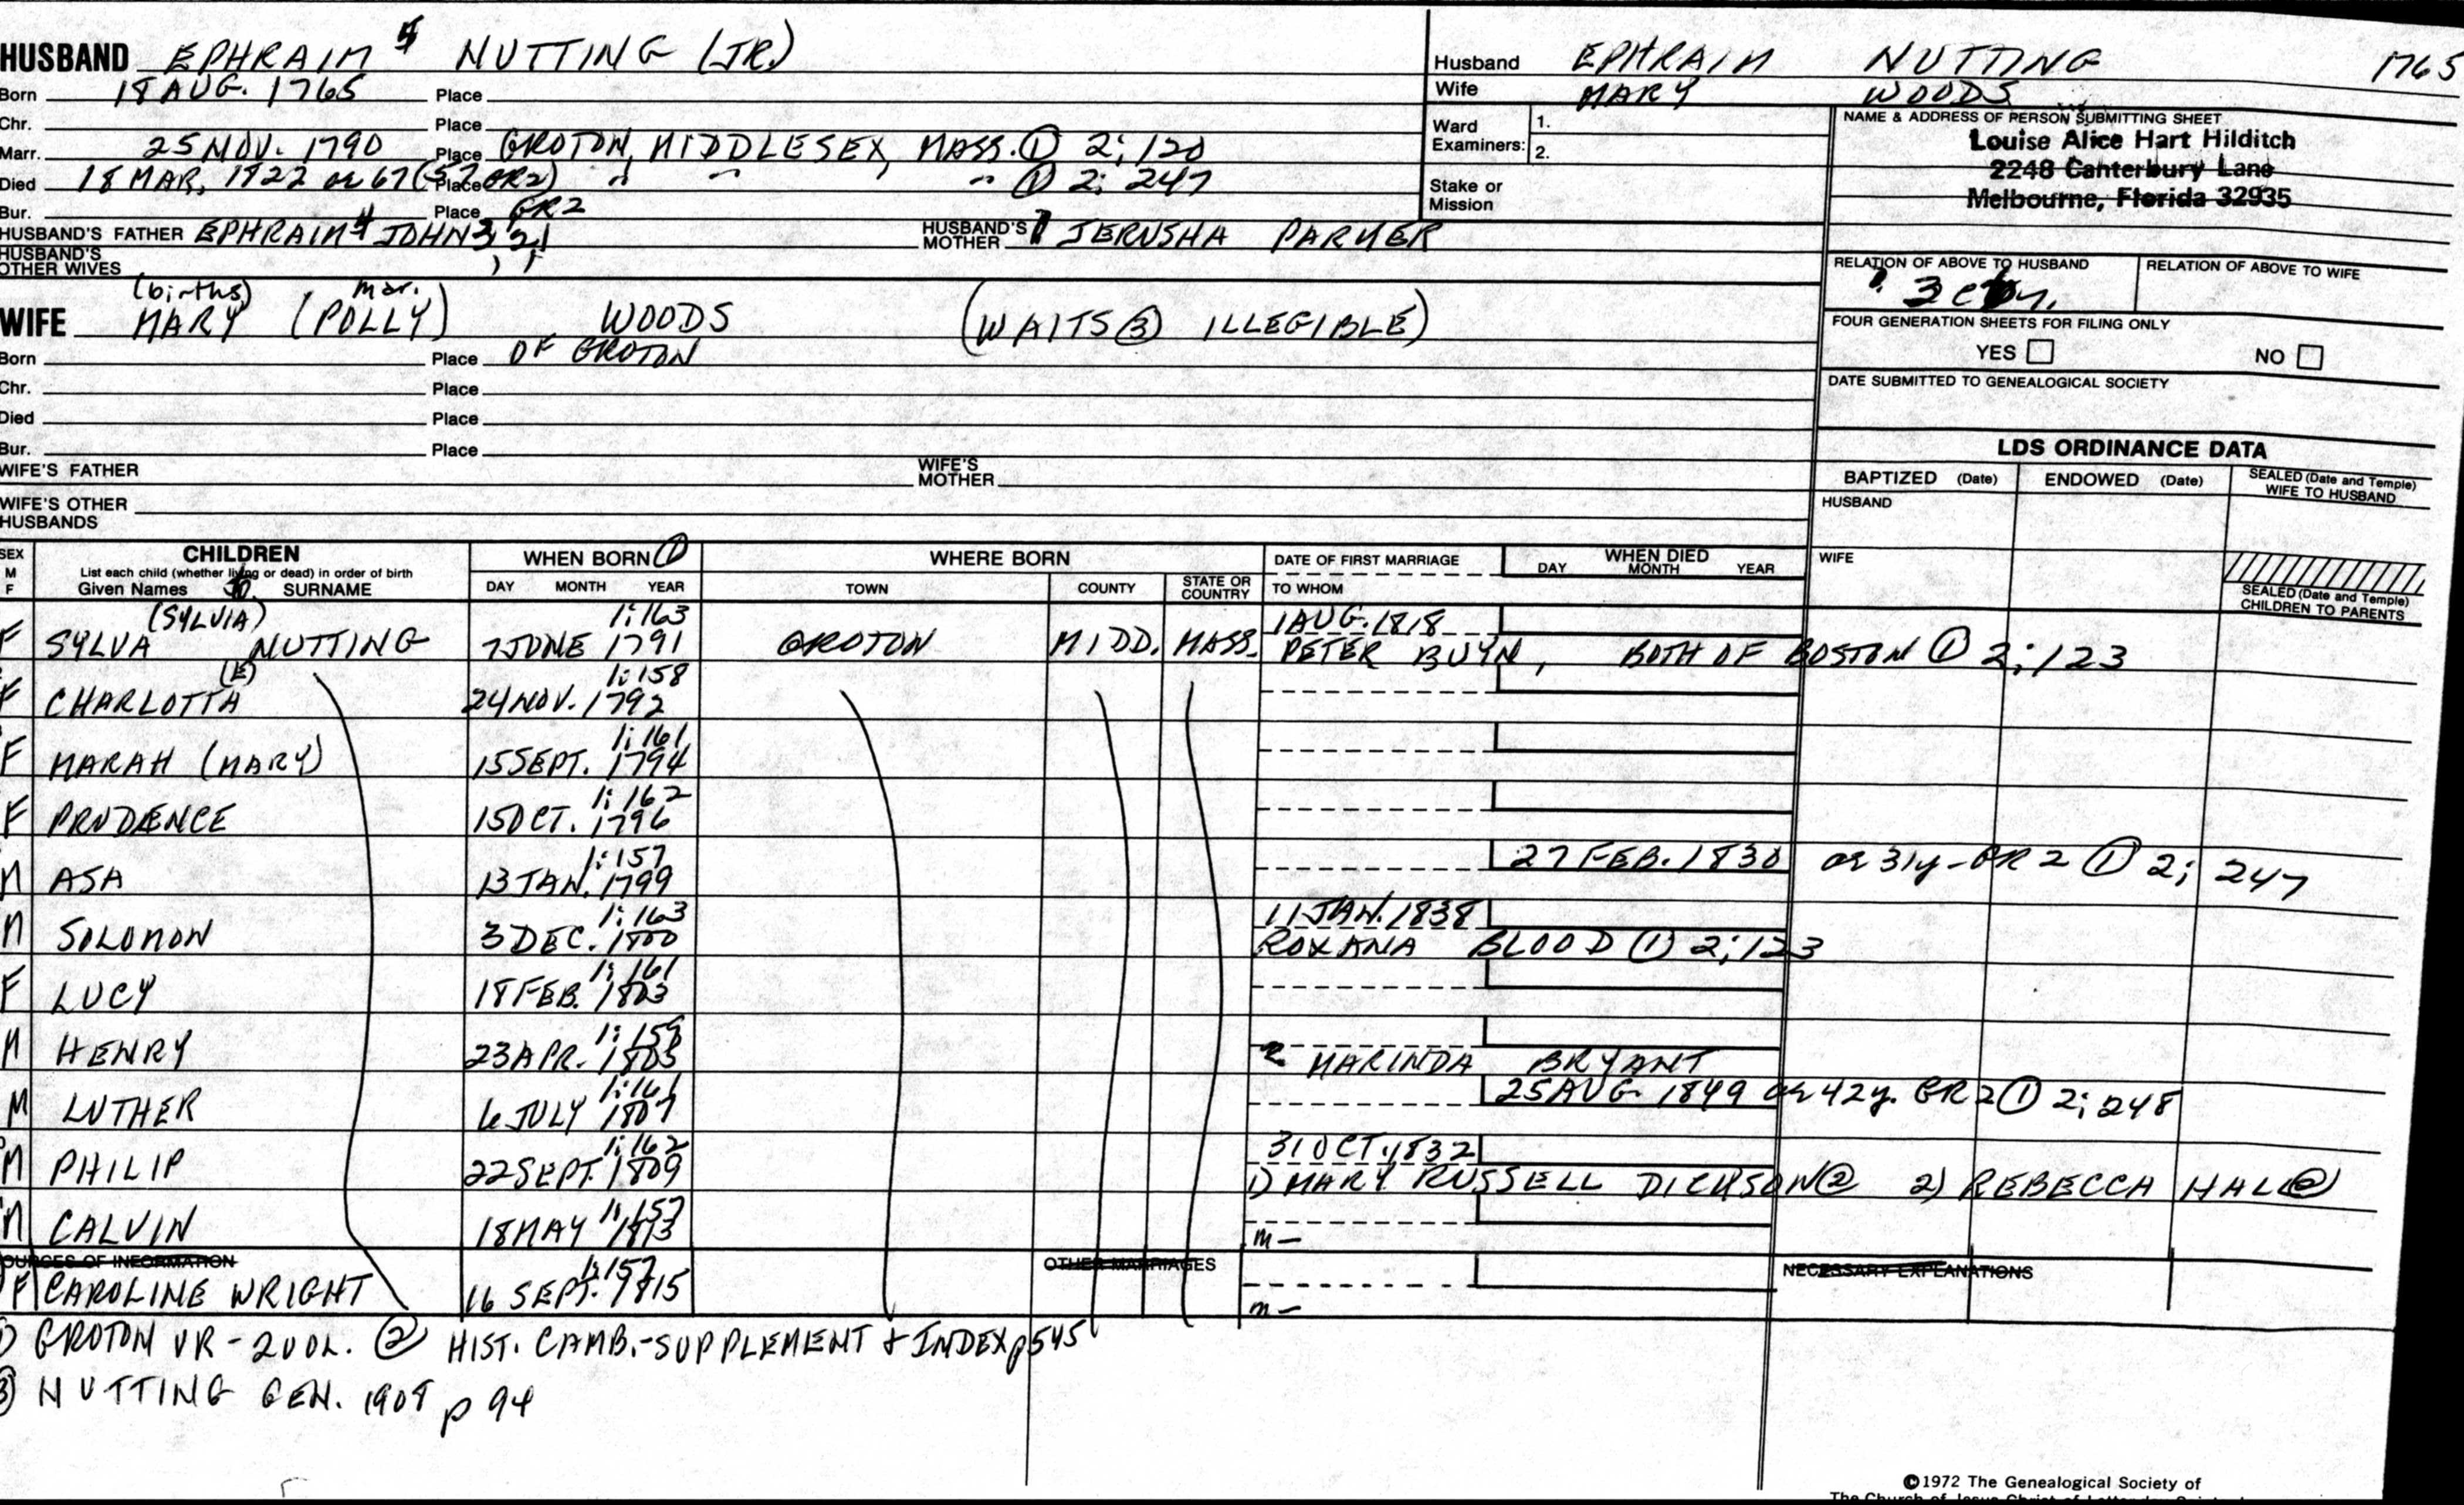 HUSBAND EPHRAIM NUTTING (JR.)
Born 18 AUG. 1765 Place
Chr. Place
Marr. 25 NOV. 1790 Place GROTON, MIDDLESEX, MASS. ① 2; 120
Died 18 MAR, 1822 ae 67 (57 GR2) Place " " " ① 2; 247
Bur. Place GR2
HUSBAND'S FATHER EPHRAIM 4 JOHN 3, 2, 1 HUSBAND'S MOTHER JERUSHA PARKER
HUSBAND'S OTHER WIVES
(births) mar.
WIFE MARY (POLLY) WOODS (WAITS ③ ILLEGIBLE)
Born Place OF GROTON
Chr. Place
Died Place
Bur. Place
WIFE'S FATHER WIFE'S MOTHER
WIFE'S OTHER HUSBANDS
Husband EPHRAIM NUTTING 1765
Wife MARY WOODS
Ward Examiners: 1.
2.
Stake or Mission
NAME & ADDRESS OF PERSON SUBMITTING SHEET
Louise Alice Hart Hilditch
2248 Canterbury Lane
Melbourne, Florida 32935
RELATION OF ABOVE TO HUSBAND RELATION OF ABOVE TO WIFE
FOUR GENERATION SHEETS FOR FILING ONLY
YES NO
DATE SUBMITTED TO GENEALOGICAL SOCIETY
LDS ORDINANCE DATA
BAPTIZED (Date) ENDOWED (Date) SEALED (Date and Temple) WIFE TO HUSBAND
HUSBAND
WIFE
SEALED (Date and Temple) CHILDREN TO PARENTS
SEX M F CHILDREN WHEN BORN ① WHERE BORN DATE OF FIRST MARRIAGE WHEN DIED
List each child (whether living or dead) in order of birth
Given Names SURNAME DAY MONTH YEAR TOWN COUNTY STATE OR COUNTRY TO WHOM DAY MONTH YEAR
(SYLVIA) 1:163 1 AUG. 1818
F SYLVA NUTTING 7 JUNE 1791 GROTON MIDD. MASS. PETER BUYN, BOTH OF BOSTON ① 2; 123
(E) 1:158
F CHARLOTTA 24 NOV. 1792
1:161
F MARAH (MARY) 15 SEPT. 1794
1:162
F PRUDENCE 15 OCT. 1796
1:157 27 FEB. 1830 ae 31y - GR 2 ① 2; 247
M ASA 13 JAN. 1799
1:163 11 JAN. 1838
M SOLOMON 3 DEC. 1800 ROXANA BLOOD ① 2; 123
1:161
F LUCY 18 FEB. 1803
1:159
M HENRY 23 APR. 1805 MARINDA BRYANT
1:161 25 AUG. 1849 ae 42y. GR 2 ① 2; 248
M LUTHER 6 JULY 1807
1:162 31 OCT. 1832
M PHILIP 22 SEPT. 1809 1) MARY RUSSELL DICKSON ② 2) REBECCA HALL ②
1:157
M CALVIN 18 MAY 1813 m—
SOURCES OF INFORMATION OTHER MARRIAGES NECESSARY EXPLANATIONS
1:157
F CAROLINE WRIGHT 16 SEPT. 1815 m—
① GROTON VR - 2 VOL. ② HIST. CAMB. - SUPPLEMENT & INDEX p 545
③ NUTTING GEN. 1908 p 94
©1972 The Genealogical Society of